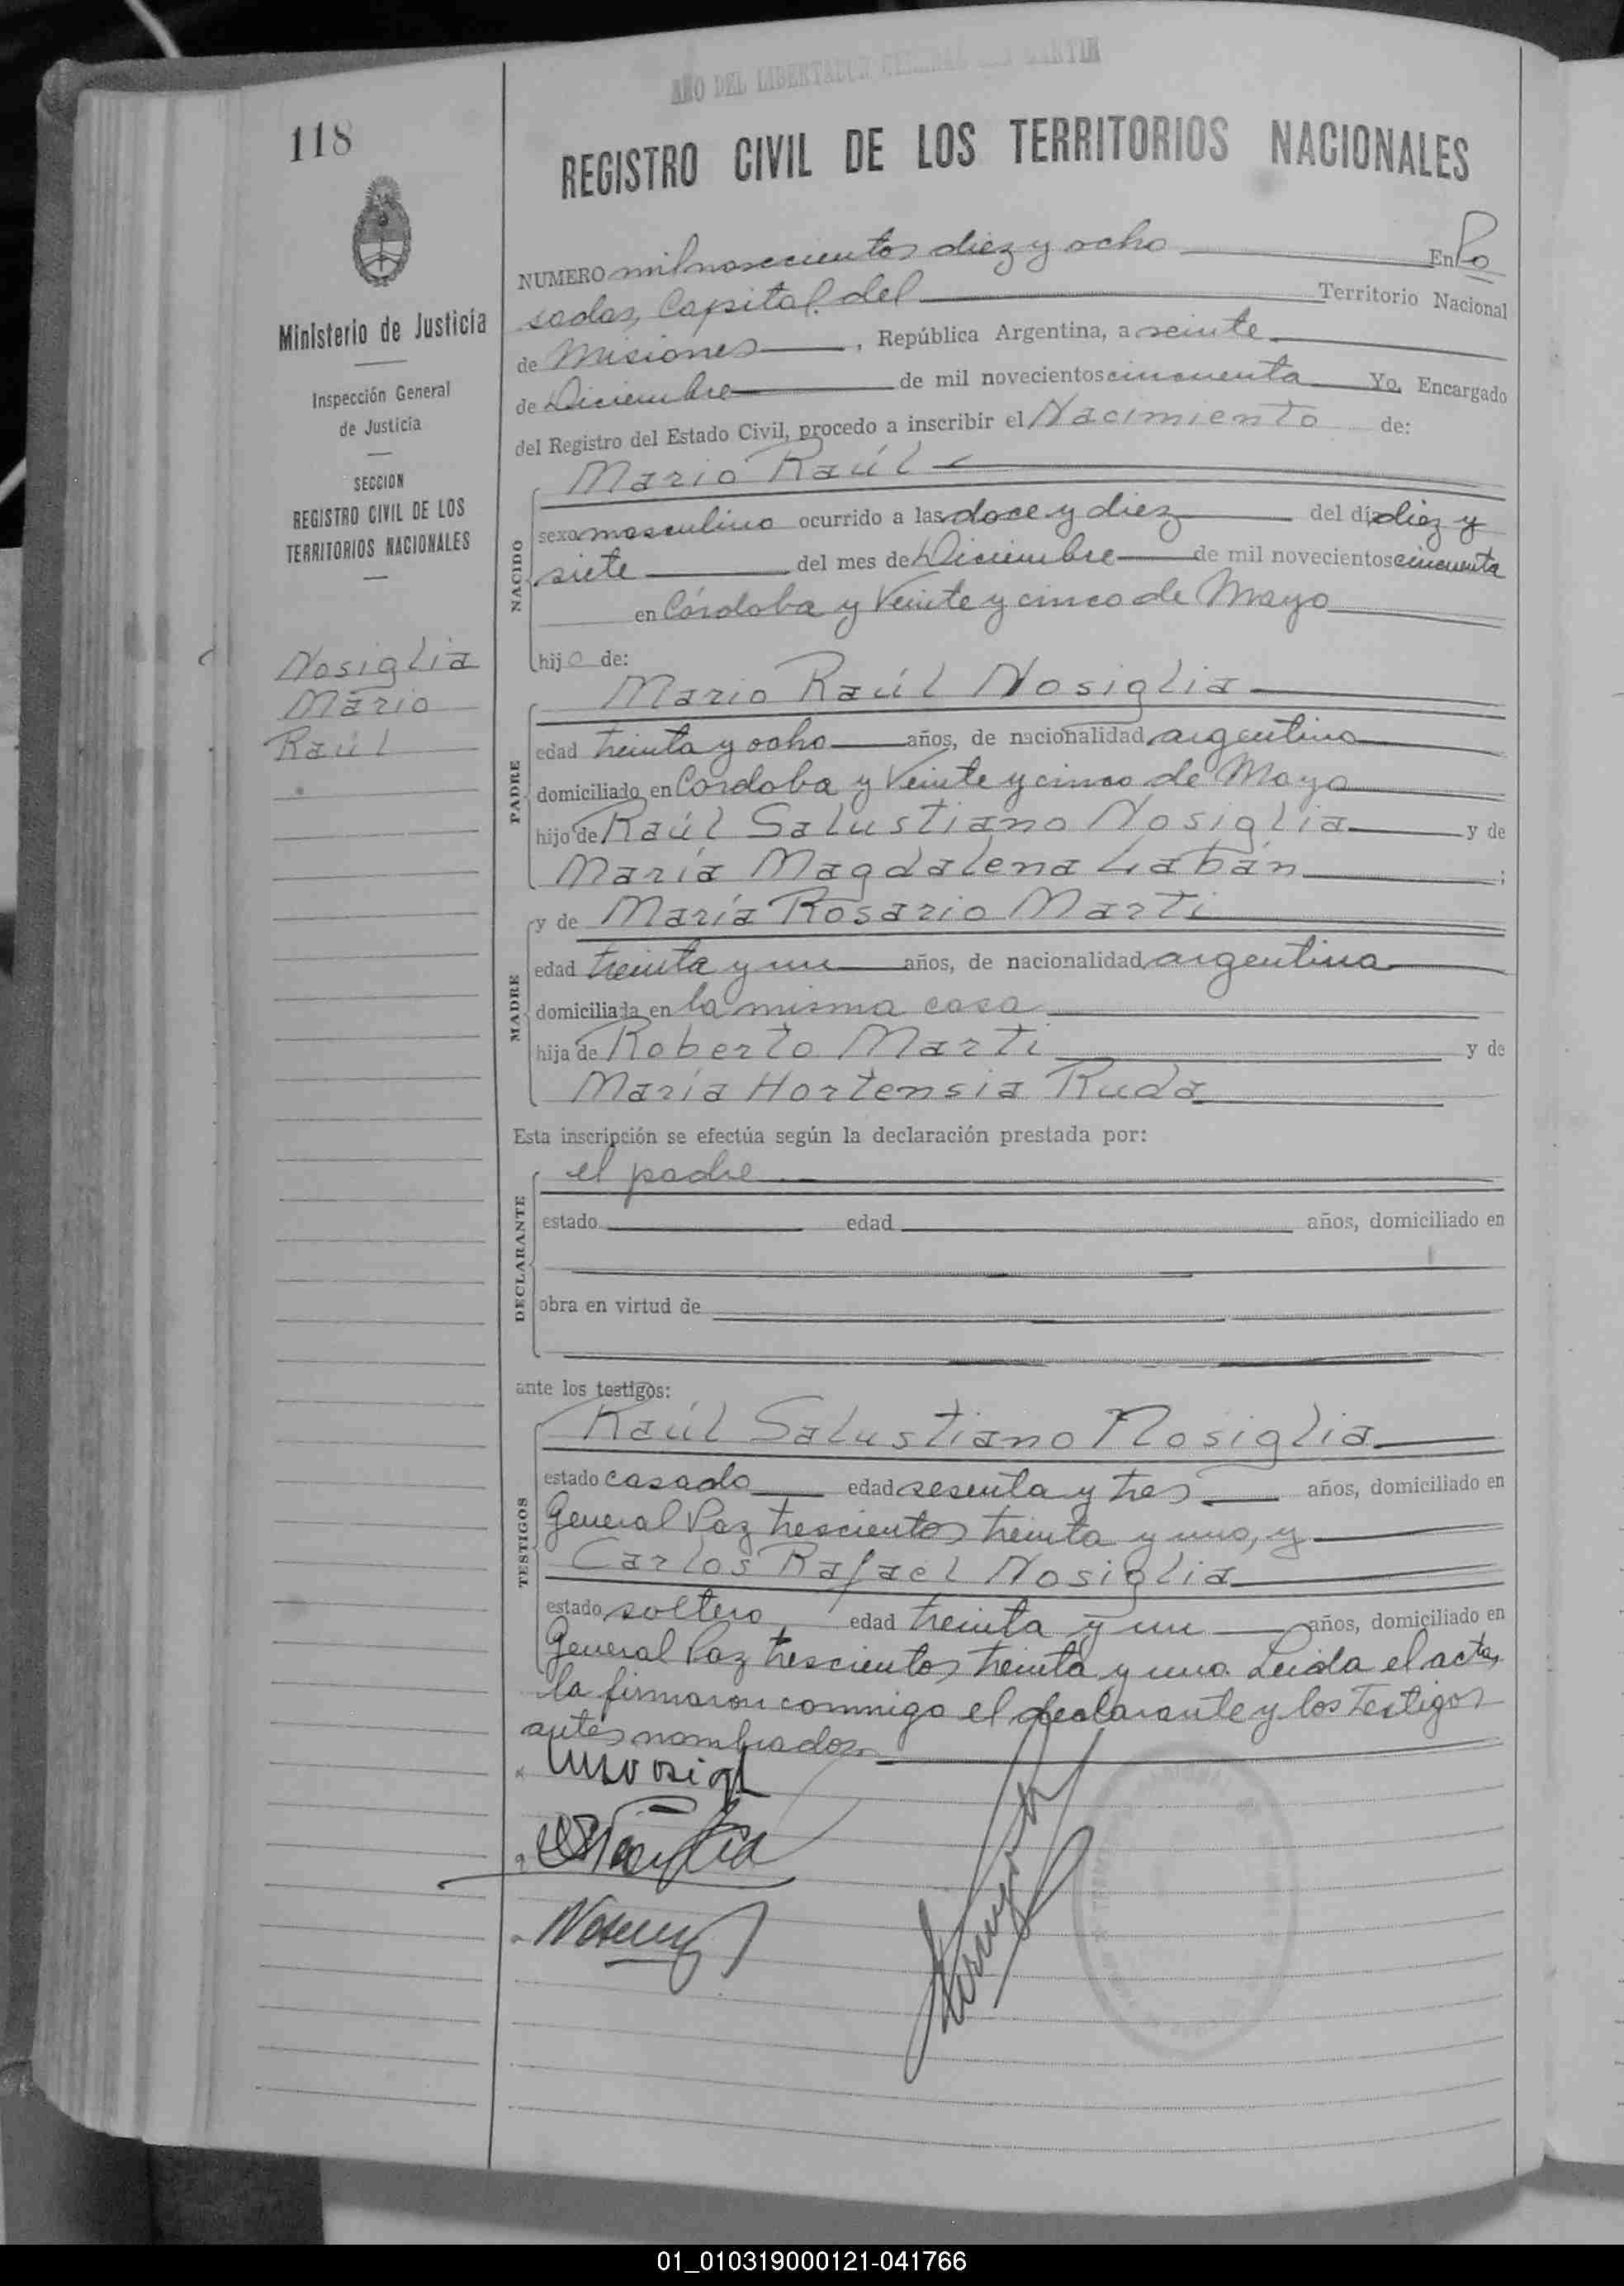 AÑO DEL LIBERTADOR GENERAL SAN MARTIN
118
REGISTRO CIVIL DE LOS TERRITORIOS NACIONALES
Ministerio de Justicia
Inspección General
de Justicia
SECCION
REGISTRO CIVIL DE LOS
TERRITORIOS NACIONALES
Nosiglia
Mario
Raúl
NUMERO mil novecientos diez y ocho En Po
sadas, Capital del Territorio Nacional
de Misiones, República Argentina, a veinte
de Diciembre de mil novecientos cincuenta Yo, Encargado
del Registro del Estado Civil, procedo a inscribir el Nacimiento de:
NACIDO
Mario Raúl
sexo masculino ocurrido a las doce y diez del día diez y
siete del mes de Diciembre de mil novecientos cincuenta
en Córdoba y Veinte y cinco de Mayo
hijo de:
PADRE
Mario Raúl Nosiglia
edad treinta y ocho años, de nacionalidad argentina
domiciliado en Córdoba y Veinte y cinco de Mayo
hijo de Raúl Salustiano Nosiglia y de
María Magdalena Labán;
MADRE
y de María Rosario Marti
edad treinta y un años, de nacionalidad argentina
domiciliada en la misma casa
hija de Roberto Marti y de
María Hortensia Ruda
Esta inscripción se efectúa según la declaración prestada por:
DECLARANTE
el padre
estado edad años, domiciliado en
obra en virtud de
ante los testigos:
TESTIGOS
Raúl Salustiano Nosiglia
estado casado edad sesenta y tres años, domiciliado en
General Paz trescientos treinta y uno, y
Carlos Rafael Nosiglia
estado soltero, edad treinta y un años, domiciliado en
General Paz trescientos treinta y uno. Leida el acta,
la firmaron conmigo el declarante y los testigos
antes nombrados.
01_010319000121-041766